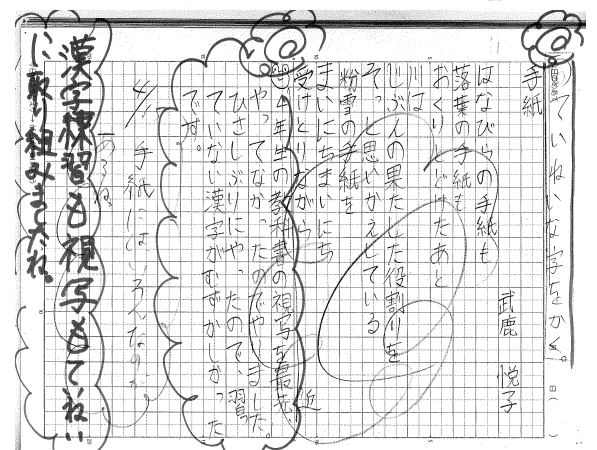 ていねいな字をかく。
手紙
武鹿 悦子
はなびらの手紙も
落葉の手紙も
おくりとどけたあと
川は
じぶんの果たした役割りを
そっと思いかえしている
粉雪の手紙を
まいにちまいにち
受けとりながら
4年生の教科書の視写を最近
やってなかったのでやりました。
ひさしぶりにやったので、習っ
ていない漢字がむずかしかった
です。
4/1 手紙にはいろんなのが
あるね
漢字練習も視写もていねい
に取り組みましたね。